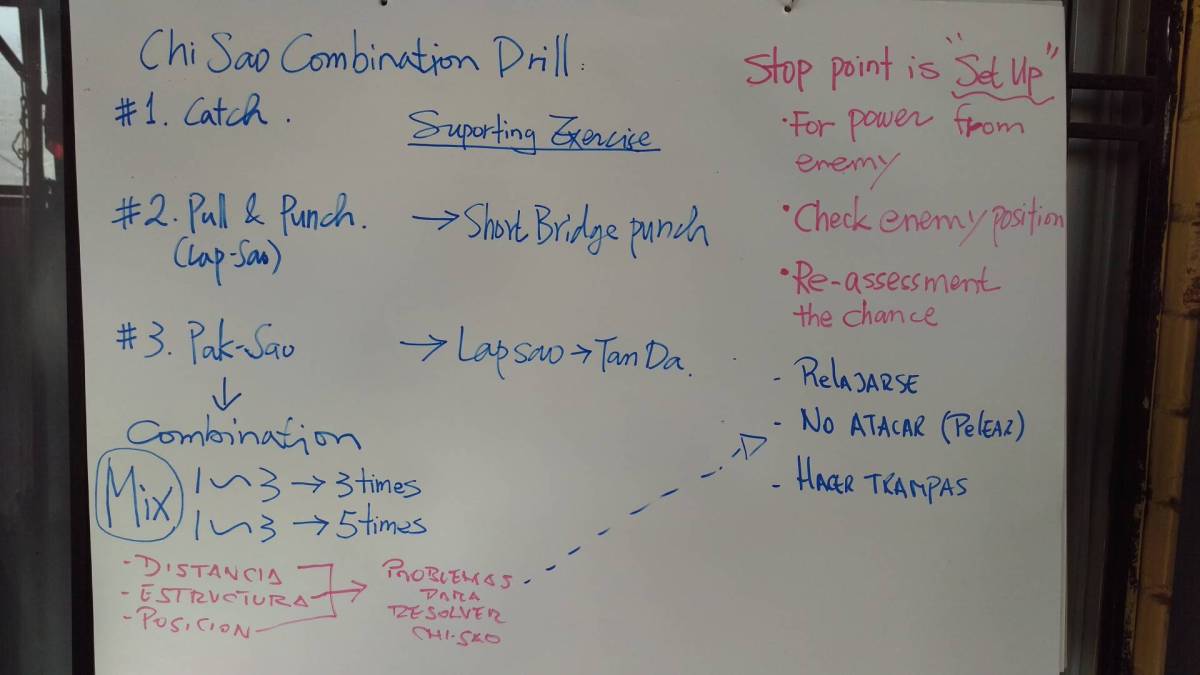 Chi Sao Combination Drill:
#1. Catch.
Suporting Exercise
#2. Pull & Punch. → Short Bridge punch
(Lap-Sao)
#3. Pak-Sao → Lapsao → Tan Da.
↓
Combination
Mix
1 ~ 3 → 3 times
1 ~ 3 → 5 times
- DISTANCIA
- ESTRUCTURA
- POSICION
PROBLEMAS
PARA
RESOLVER
CHI-SAO
Stop point is "Set Up"
• For power from
enemy
• Check enemy position
• Re-assessment
the chance
- RELAJARSE
- NO ATACAR (PELEAR)
- HACER TRAMPAS